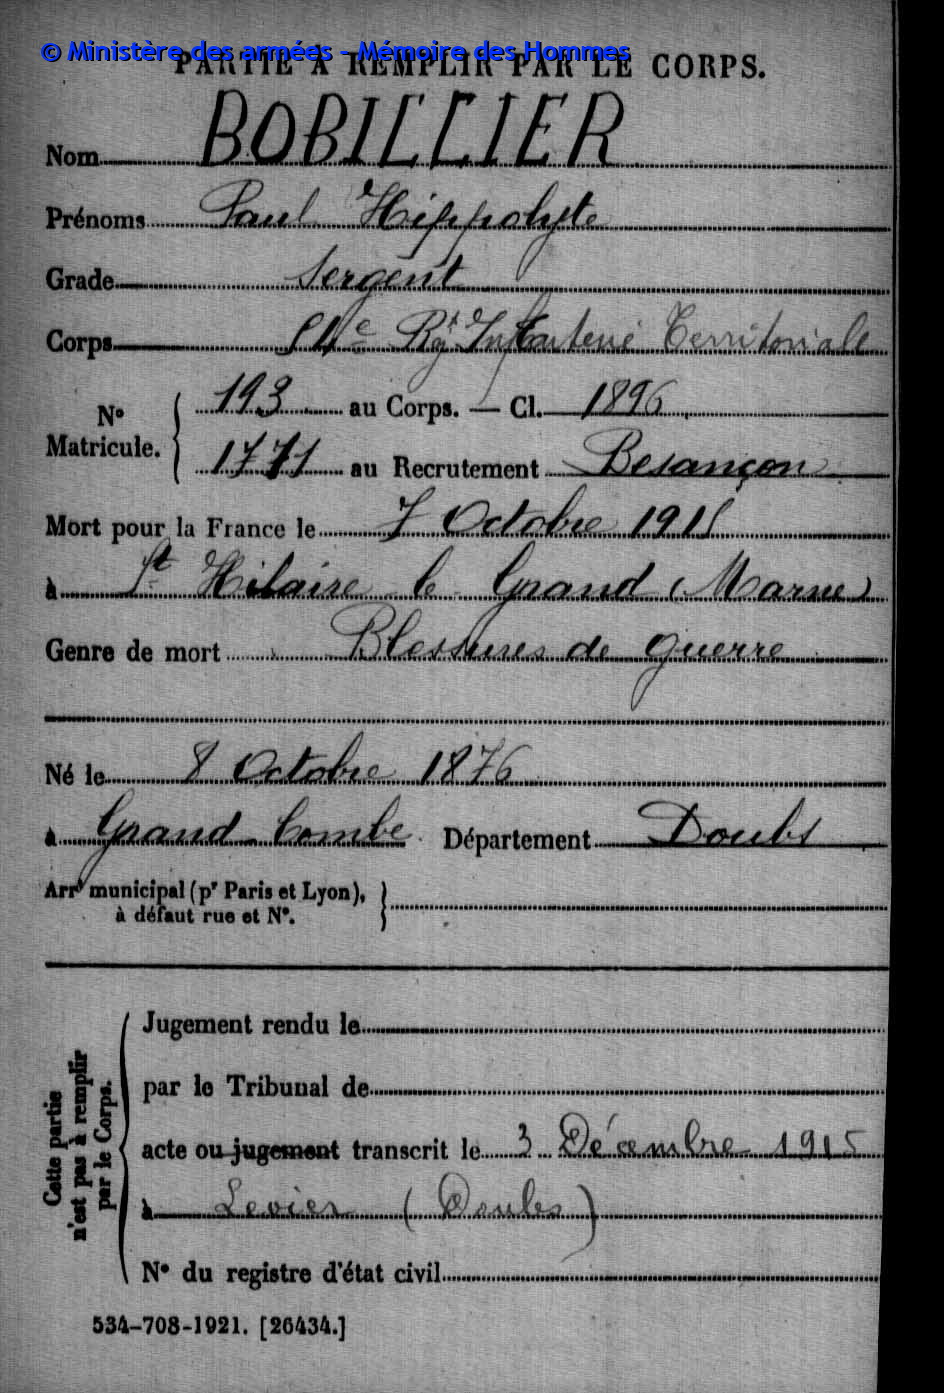 © Ministère des armées - Mémoire des Hommes
PARTIE À REMPLIR PAR LE CORPS.
Nom BOBILLIER
Prénoms Paul Hippolyte
Grade Sergent
Corps 54e Rgt Infanterie Territoriale
N° Matricule. 193 au Corps. — Cl. 1896
1771 au Recrutement Besançon
Mort pour la France le 7 Octobre 1915
à St Hilaire le Grand (Marne)
Genre de mort Blessures de guerre
Né le 8 Octobre 1876
à Grand Combe Département Doubs
Arrt municipal (pr Paris et Lyon),
à défaut rue et N°.
Cette partie
n'est pas à remplir
par le Corps.
Jugement rendu le
par le Tribunal de
acte ou jugement transcrit le 3 Décembre 1915
à Levier (Doubs)
N° du registre d'état civil
534-708-1921. [26434.]